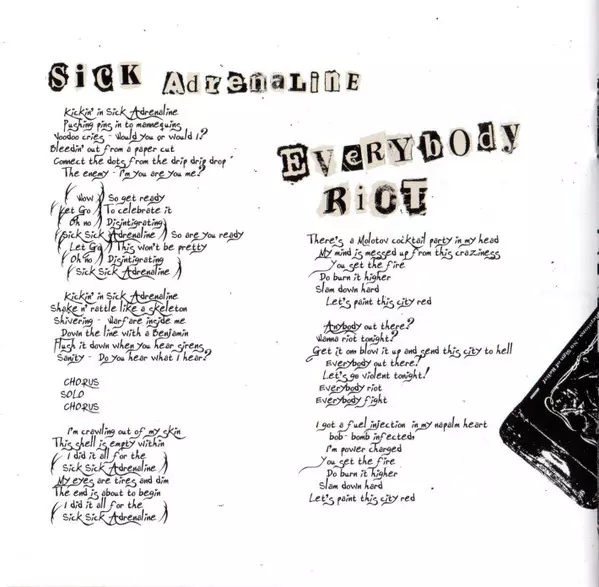 SiCK AdrenaLiNE
Kickin' in Sick Adrenaline
Pushing pins in to mannequins
Voodoo cries - Would you or would I?
Bleedin' out from a paper cut
Connect the dots from the drip drip drop
The enemy - I'm you are you me?
(Wow) So get ready
(Let Go) To celebrate it
(Oh no) Disintigrating
(Sick Sick Adrenaline) So are you ready
(Let Go) This won't be pretty
(Oh no) Disintigrating
(Sick Sick Adrenaline)
Kickin' in Sick Adrenaline
Shake n' rattle like a skeleton
Shivering - Warfare inside me
Down the line with a Benjamin
Flush it down when you hear sirens
Sanity - Do you hear what I hear?
CHORUS
SOLO
CHORUS
I'm crawling out of my skin
This shell is empty within
(I did it all for the
Sick Sick Adrenaline)
My eyes are tires and dim
The end is about to begin
(I did it all for the
Sick Sick Adrenaline)
EVerybody
RiOT
There's a Molotov cocktail party in my head
My mind is messed up from this craziness
You set the fire
Do burn it higher
Slam down hard
Let's paint this city red
Anybody out there?
Wanna riot tonight?
Get it om blow it up and send this city to hell
Everybody out there?
Let's go violent tonight!
Everybody riot
Everybody fight
I got a fuel injection in my napalm heart
bob-bomb infected
I'm power charged
You set the fire
Do burn it higher
Slam down hard
Let's paint this city red